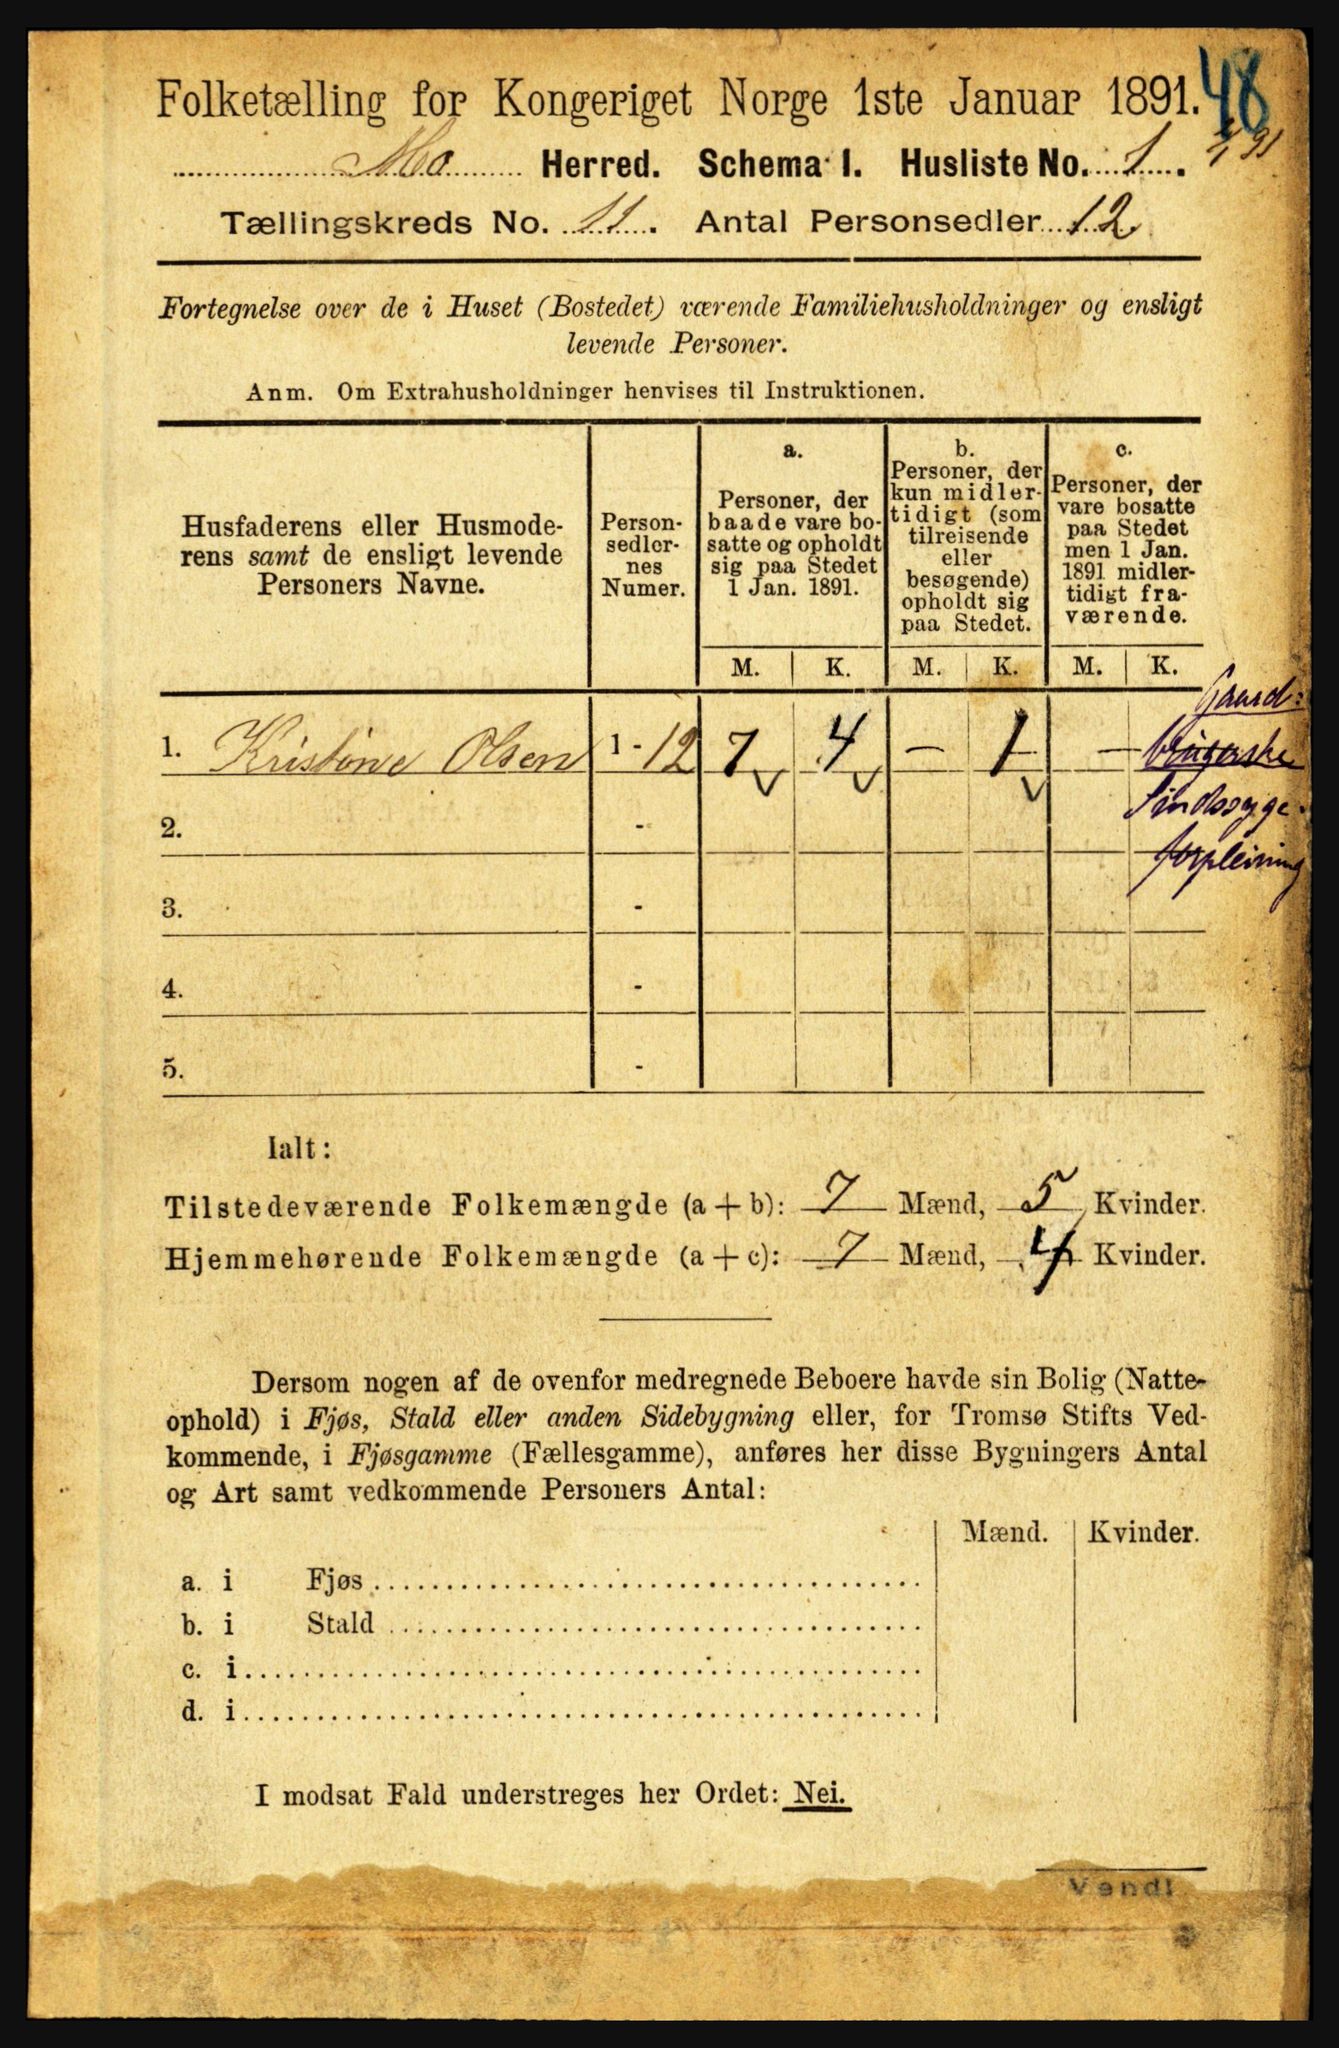 48
Folketælling for Kongeriget Norge 1ste Januar 1891.
Mo Herred. Schema I. Husliste No. 1.
Tællingskreds No. 11. Antal Personsedler 12
Fortegnelse over de i Huset (Bostedet) værende Familiehusholdninger og ensligt
levende Personer.
Anm. Om Extrahusholdninger henvises til Instruktionen.
Husfaderens eller Husmode-
rens samt de ensligt levende
Personers Navne.
Person-
sedler-
nes
Numer.
a.
Personer, der
baade vare bo-
satte og opholdt
sig paa Stedet
1 Jan. 1891.
b.
Personer, der
kun midler-
tidigt (som
tilreisende
eller
besøgende)
opholdt sig
paa Stedet.
c.
Personer, der
vare bosatte
paa Stedet
men 1 Jan.
1891 midler-
tidigt fra-
værende.
M. K. M. K. M. K.
Gaard-
brugerske
Sindssyge-
forpleining
1. Kristine Olsen 1 - 12 7 4 - 1 - -
2. -
3. -
4. -
5. -
Ialt:
Tilstedeværende Folkemængde (a + b): 7 Mænd, 5 Kvinder.
Hjemmehørende Folkemængde (a + c): 7 Mænd, 4 Kvinder.
Dersom nogen af de ovenfor medregnede Beboere havde sin Bolig (Natte-
ophold) i Fjøs, Stald eller anden Sidebygning eller, for Tromsø Stifts Ved-
kommende, i Fjøsgamme (Fællesgamme), anføres her disse Bygningers Antal
og Art samt vedkommende Personers Antal:
Mænd. Kvinder.
a. i Fjøs
b. i Stald
c. i
d. i
I modsat Fald understreges her Ordet: Nei.
Vend!